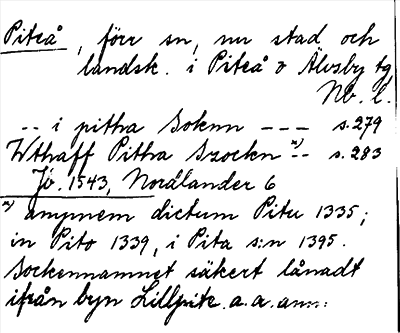 Piteå, förr sn, nu stad och
landsk. i Piteå o Älvsby tg
Nb. l.
-- i pitha Soknn --- s. 279
Wthaff Pittha Szockn *) -- s. 283
Jb. 1543, Nordlander 6
*) ampnem dictum Pitu 1335;
in Pito 1339, i Pita s:n 1395.
Sockennamnet säkert lånadt
ifrån byn Lillpite. a. a. anm: